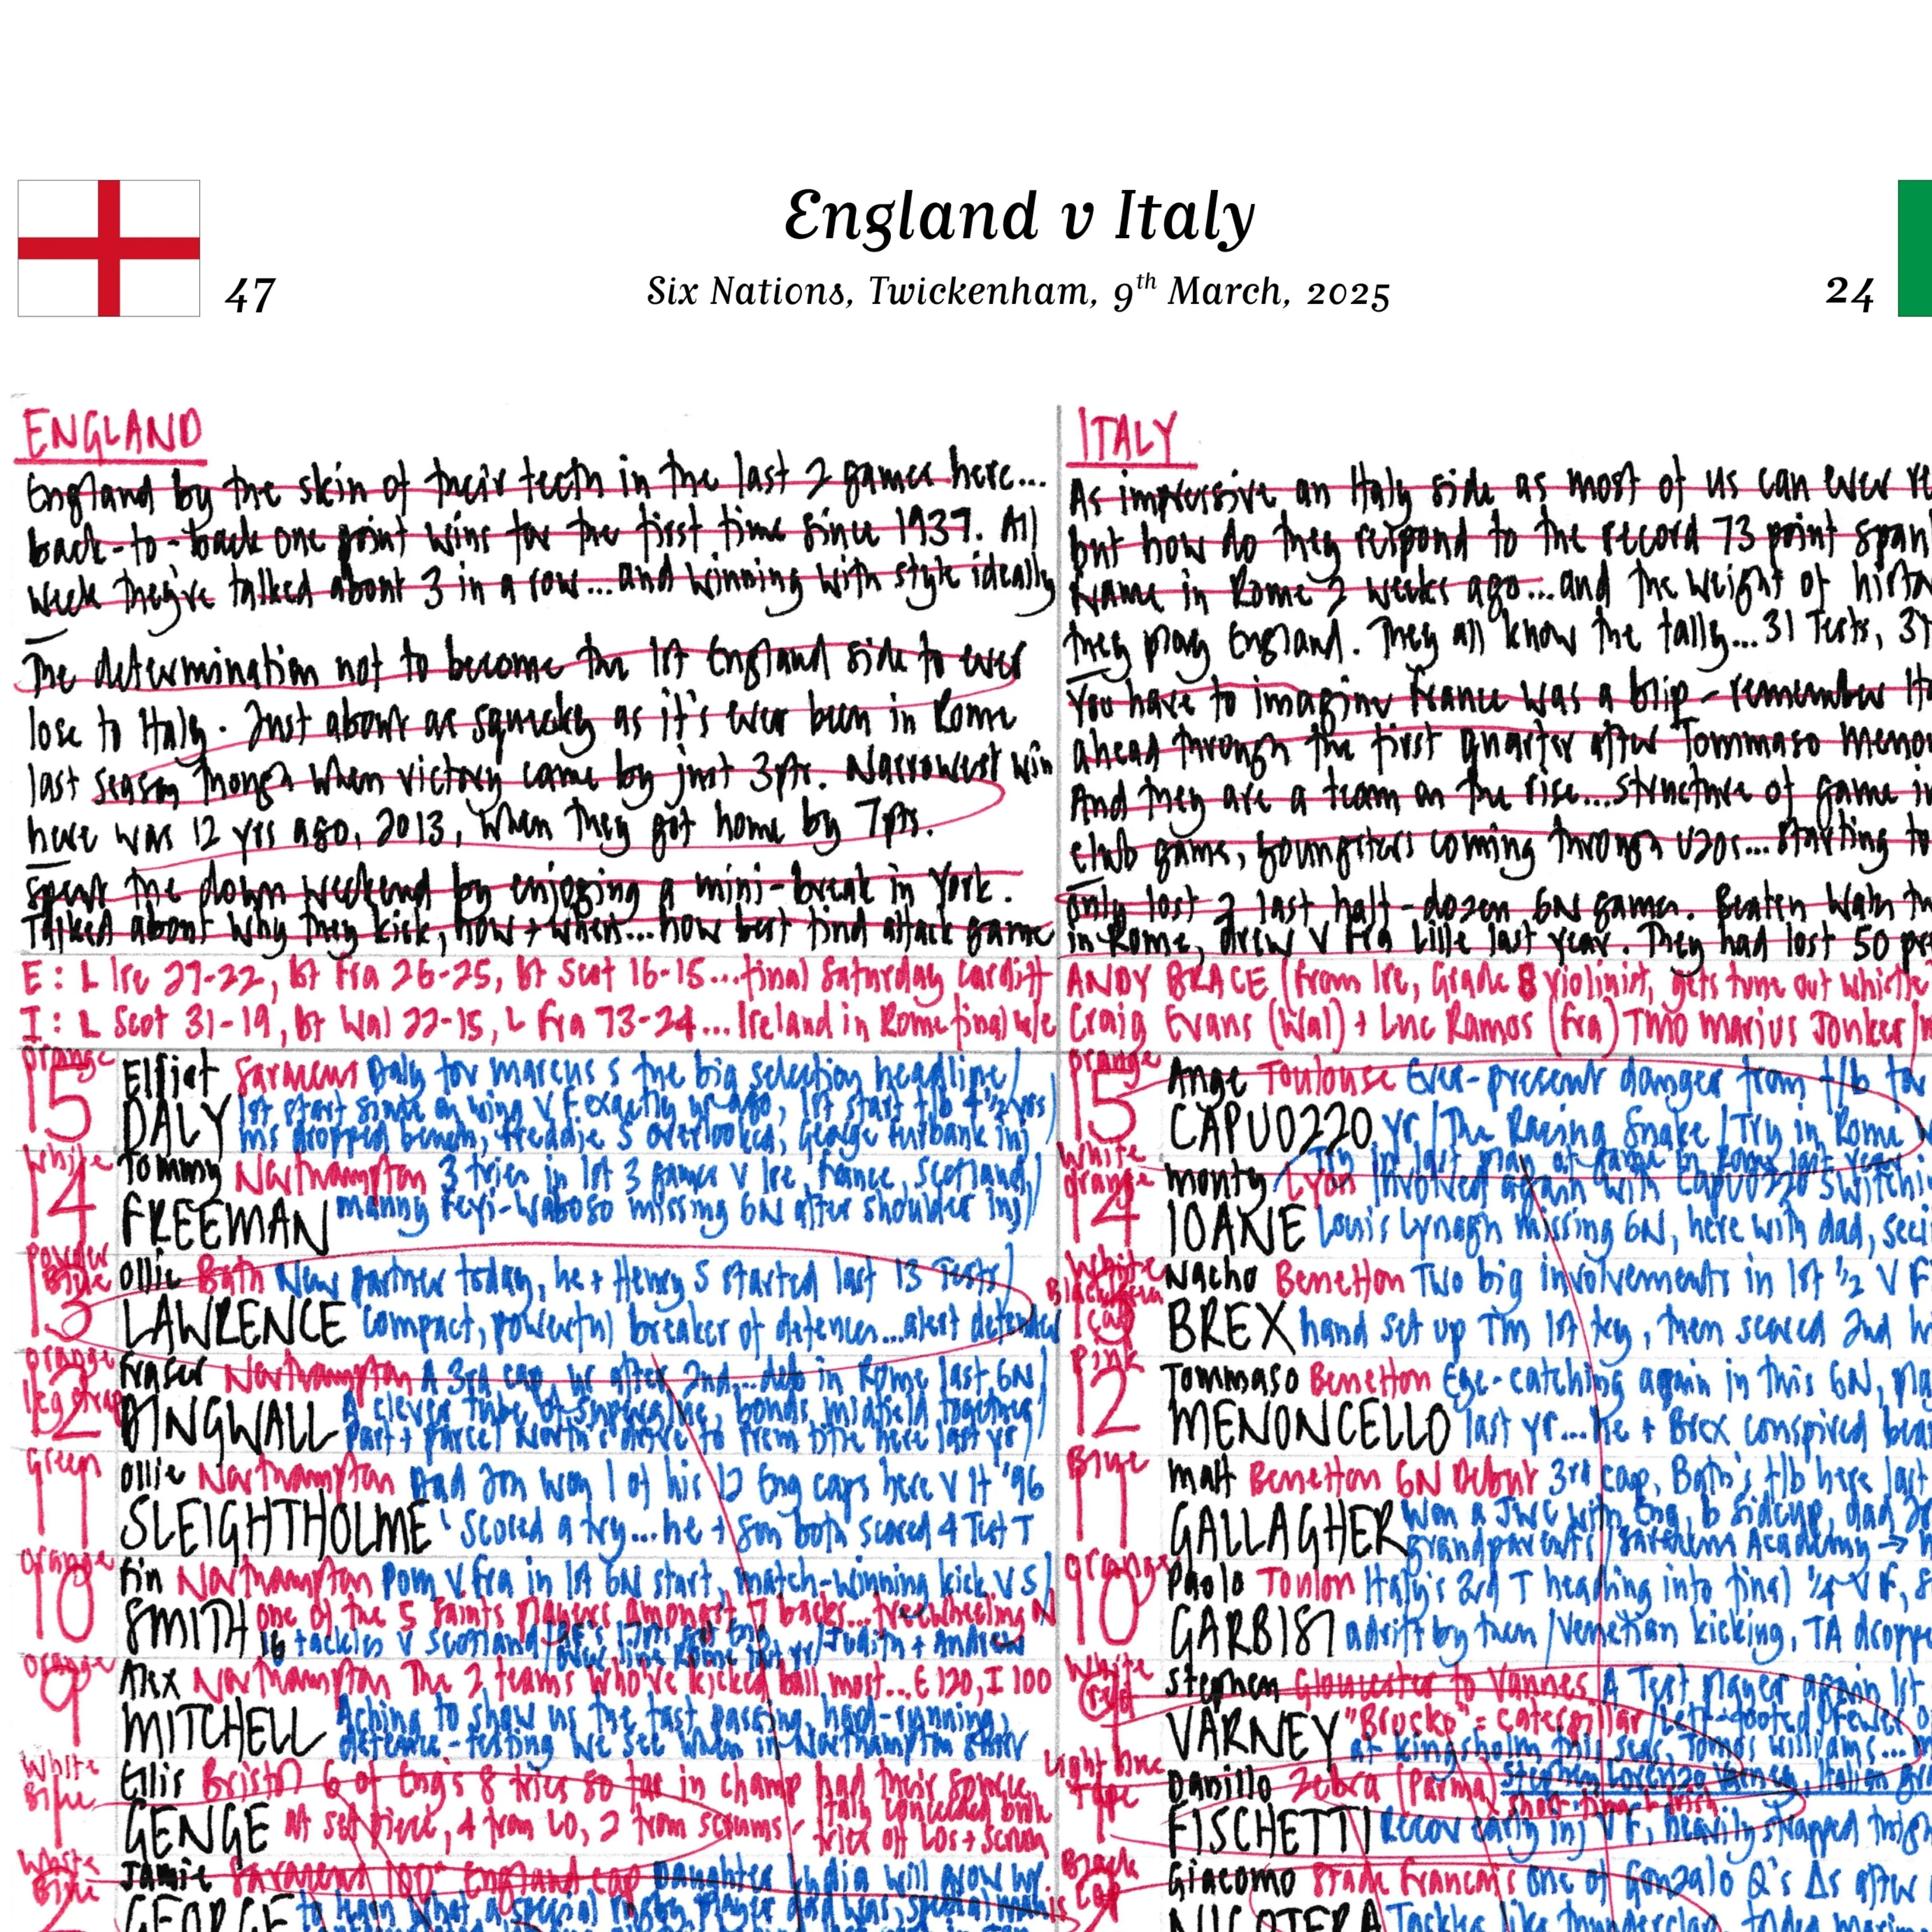 England v Italy
Six Nations, Twickenham, 9th March, 2025
47
24
ENGLAND
England by the skin of their teeth in the last 2 games here...
back-to-back one point wins for the first time since 1937. All
week they're talked about 3 in a row...and winning with style ideally
The determination not to become the 1st England side to ever
lose to Italy. Just about as squeaky as it's ever been in Rome
last season though when victory came by just 3pts. Narrowest win
here was 12 yrs ago, 2013, when they got home by 7pts.
Spent the down weekend by enjoying a mini-break in York.
Talked about why they kick, how + when...how best find attack game
E: L Ire 27-22, bt Fra 26-25, bt Scot 16-15...final Saturday Cardiff
I: L Scot 31-19, bt Wal 22-15, L Fra 73-24...Ireland in Rome final w/e
Orange
15 Elliot Saracens Daly for Marcus S the big selection headline/
DALY 1st start since on wing v F exactly yr ago, 1st start f/b 4 1/2 yrs/
MS dropped bench, Freddie S overlooked, George Furbank inj
White
14 Tommy Northampton 3 tries in 1st 3 games v Ire, France, Scotland/
FREEMAN Manny Feyi-Waboso missing 6N after shoulder inj/
Powder Blue
13 Ollie Bath New partner today, he + Henry S started last 13 Tests/
LAWRENCE Compact, powerful breaker of defences...alert defender
Orange leg strap
12 Fraser Northampton A 3rd cap, yr after 2nd...deb in Rome last 6N/
DINGWALL A clever tube of superglue, bonds midfield together/
Part + parcel North's drive to Prem title here last yr/
Green
11 Ollie Northampton Dad Jon won 1 of his 12 Eng caps here v It '96
SLEIGHTHOLME scored a try...he + son both scored 4 Test T
Orange
10 Fin Northampton POM v Fra in 1st 6N start, match-winning kick v S/
SMITH One of the 5 Saints players amongst 7 backs...freewheeling N
16 tackles v Scotland Rome last yr/Judith + Andrew
Orange
9 Alex Northampton The 2 teams who've kicked ball most...E 120, I 100
MITCHELL Aching to show us the fast passing, hard-running,
defence-testing we see when in Northampton shirt
White Blue
1 Ellis Bristol 6 of Eng's 8 tries so far in champ had their source
GENGE at set piece, 4 from LO, 2 from scrums - Italy conceded both
tries off LOs + scrum
White Blue
Jamie Saracens 100th England cap Daughter will grow up
GEORGE to learn what a special rugby player dad was,
ITALY
As impressive an Italy side as most of us can ever re
but how do they respond to the record 73 point span
France in Rome 2 weeks ago...and the weight of histo
they play England. They all know the tally...31 Tests, 31
You have to imagine France was a blip - remember It
ahead through the first quarter after Tommaso Menon
And they are a team on the rise...structure of game in
club game, youngsters coming through U20s...starting to
Only lost 2 last half-dozen 6N games. Beaten Wales tw
in Rome, drew v Fra Lille last year. They had lost 50 pr
ANDY BRACE (from Ire, Grade 8 violinist, gets tune out whistle
Craig Evans (Wal) + Luc Ramos (Fra) TMO Marius Jonker
Orange
15 Ange Toulouse Ever-present danger from f/b for
CAPUOZZO yr/The Racing Snake/Try in Rome
White orange
14 Monty Lyon Try in last play of game in Rome last year
Involved again with Capuozzo switchi
IOANE Louis Lynagh missing 6N, here with dad, seei
White
13 Nacho Benetton Two big involvements in 1st 1/2 v F
BREX hand set up TM 1st try, then scored 2nd
Pink
12 Tommaso Benetton Eye-catching again in this 6N, pla
MENONCELLO last yr...he + Brex conspired bea
Blue
11 Matt Benetton 6N Debut 3rd cap, Bath's f/b here last
GALLAGHER Won a JWC with Eng, b Sidcup, dad
grandparents/Saracens Academy →
Orange
10 Paolo Toulon Italy's 3rd T heading into final 1/4 v F, 8
GARBISI adrift by then/Venetian kicking, TA droppe
White
9 Stephen Gloucester to Vannes A Test player again 1st
VARNEY "Bruco" = caterpillar/Left-footed/Fewer
at Kingsholm this seas, Tomos Williams...
Light blue Tape
1 Danilo Zebra (Parma)
FISCHETTI Recov early inj v F, heavily strapped thigh
Black cap
Giacomo Stade Francais One of Gonzalo Q's Δs after
NICOTERA Tackles like thunderclap,